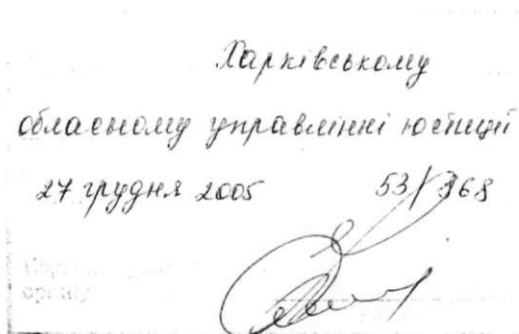 Харківському
обласному управлінні юстиції
27 грудня 2005 53/368